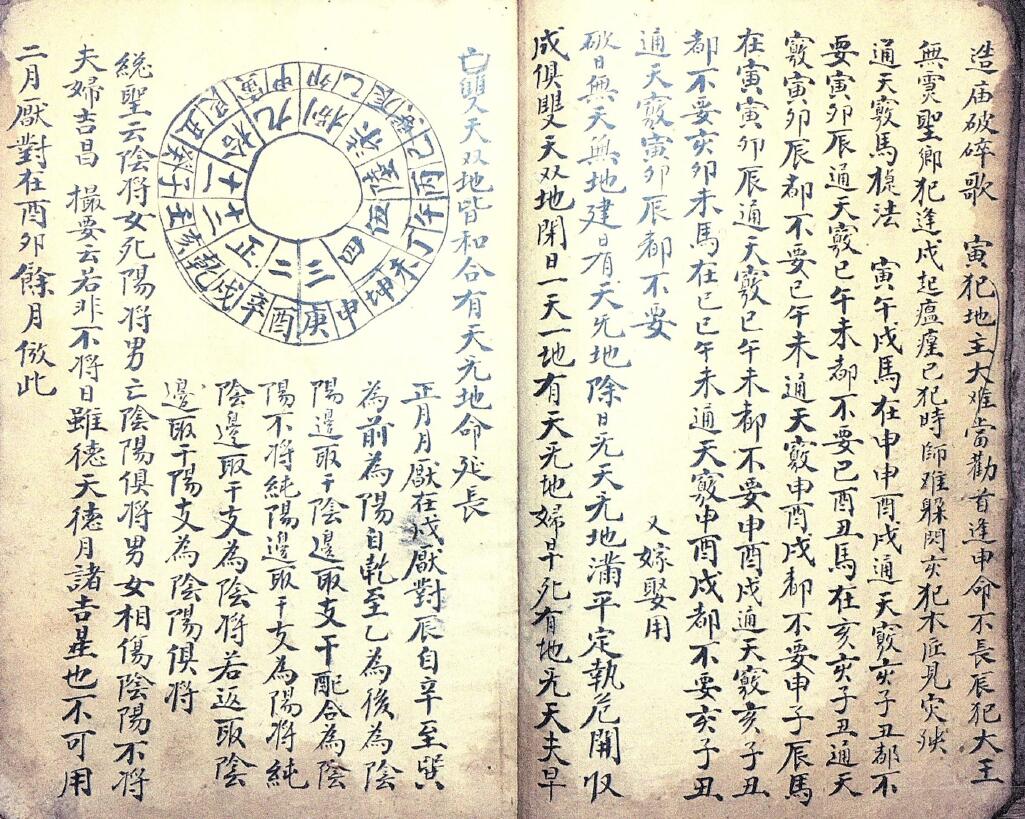 造庙破碎歌　寅犯地主大难當勸首逢申命不長辰犯大王
無灵聖鄉犯逢戍起瘟瘟巳犯時師难躲閃亥犯木匠見灾殃
通天竅馬槙法　寅午戌馬在申申酉戌通天竅亥子丑都不
要寅卯辰通天竅巳午未都不要巳酉丑馬在亥亥子丑通天
竅寅卯辰都不要巳午未通天竅申酉戌都不要申子辰馬
在寅寅卯辰通天竅巳午未都不要申酉戌通天竅亥子丑
都不要亥卯未馬在巳巳午未通天竅申酉戌都不要亥子丑
通天竅寅卯辰都不要
又嫁娶用
破日無天無地建日有天无地除日无天无地滿平定執危開収
成俱雙天双地閉日一天一地有天无地婦早死有地无天夫早
亡雙天双地皆和合有天无地命延長
甲卯乙辰巽巳丙午丁未坤申庚酉辛戌乾亥壬子癸丑艮寅
正二三四五陸柒捌九拾十一十二
正月月厭在戌厭對辰自辛至巽
為前為陽自乾至乙為後為陰
陽邊取干陰邊取支干配合為陰
陽不將純陽邊取干支為陽將純
陰邊取干支為陰將若返取陰
邊取干陽支為陰陽俱將
総聖云陰将女死陽将男亡陰陽俱將男女相傷陰陽不将
夫婦吉昌　撮要云若非不将日雖德天德月諸吉星也不可用
二月厭對在酉卯餘月倣此